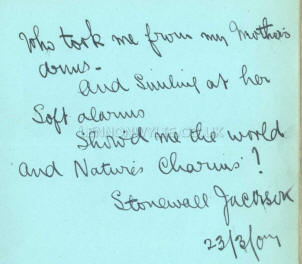 Who took me from my Mother's
arms -
And Smiling at her
Soft alarms
Show'd me the world
and Nature's Charms !
Stonewall Jackson
23/3/07